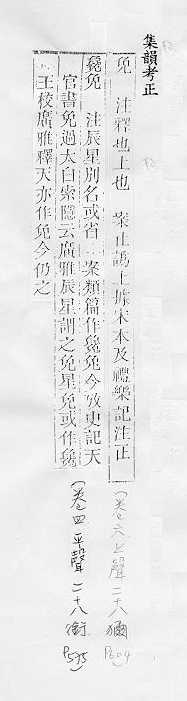 集韻考正
免　注釋也止也　案止譌上據宋本及禮樂記注正
毚免　注辰星別名或省　案類篇作毚免今攷史記天
官書免過太白索隱云廣雅辰星謂之免星免或作毚
王校廣雅釋天亦作免今仍之
(卷六上聲二十八獮
P604)
(卷四平聲二十八銜
P595)